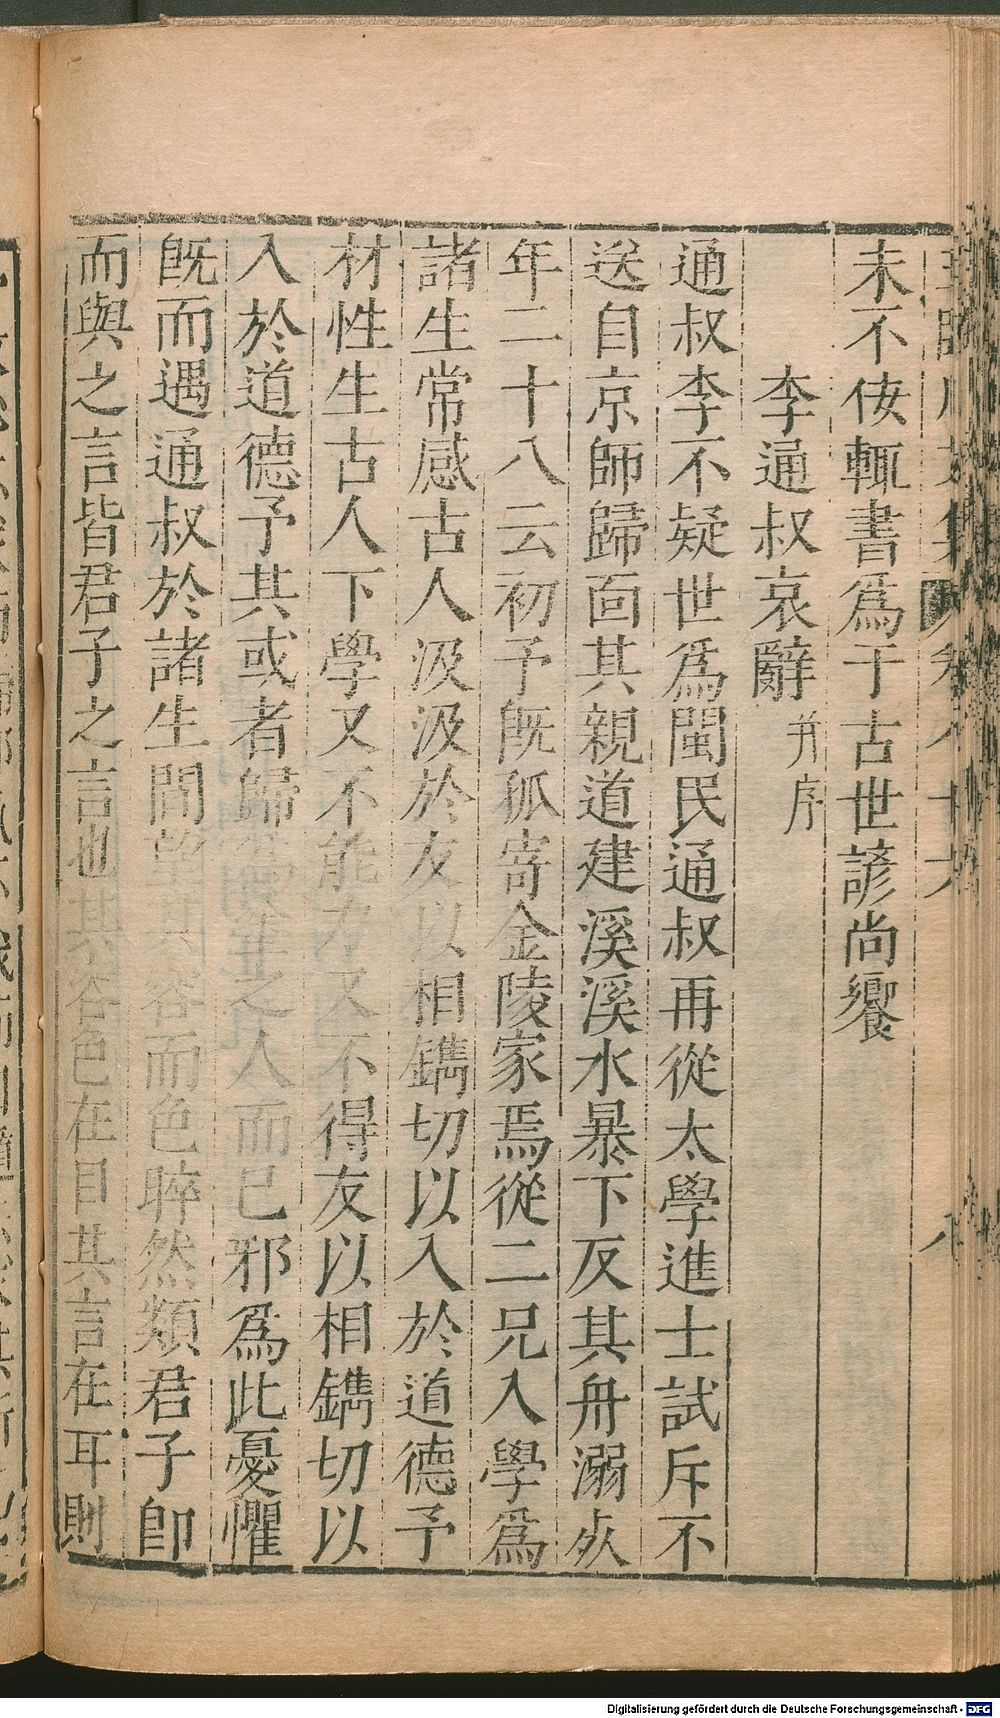 未不佞輒書爲千古世諺尚饗
李通叔哀辭 并序
通叔李不疑世爲閩民通叔再從太學進士試斥不
送自京師歸面其親道建溪溪水暴下反其舟溺死
年二十八云初予旣孤寄金陵家焉從二兄入學爲
諸生常感古人汲汲於友以相鐫切以入於道德予
材性生古人下學又不能力又不得友以相鐫切以
入於道德予其或者歸爲之人而已邪爲此憂懼
旣而遇通叔於諸生間容而色睟然類君子卽
而與之言皆君子之言也其容色在目其言在耳則
Digitalisierung gefördert durch die Deutsche Forschungsgemeinschaft - DFG